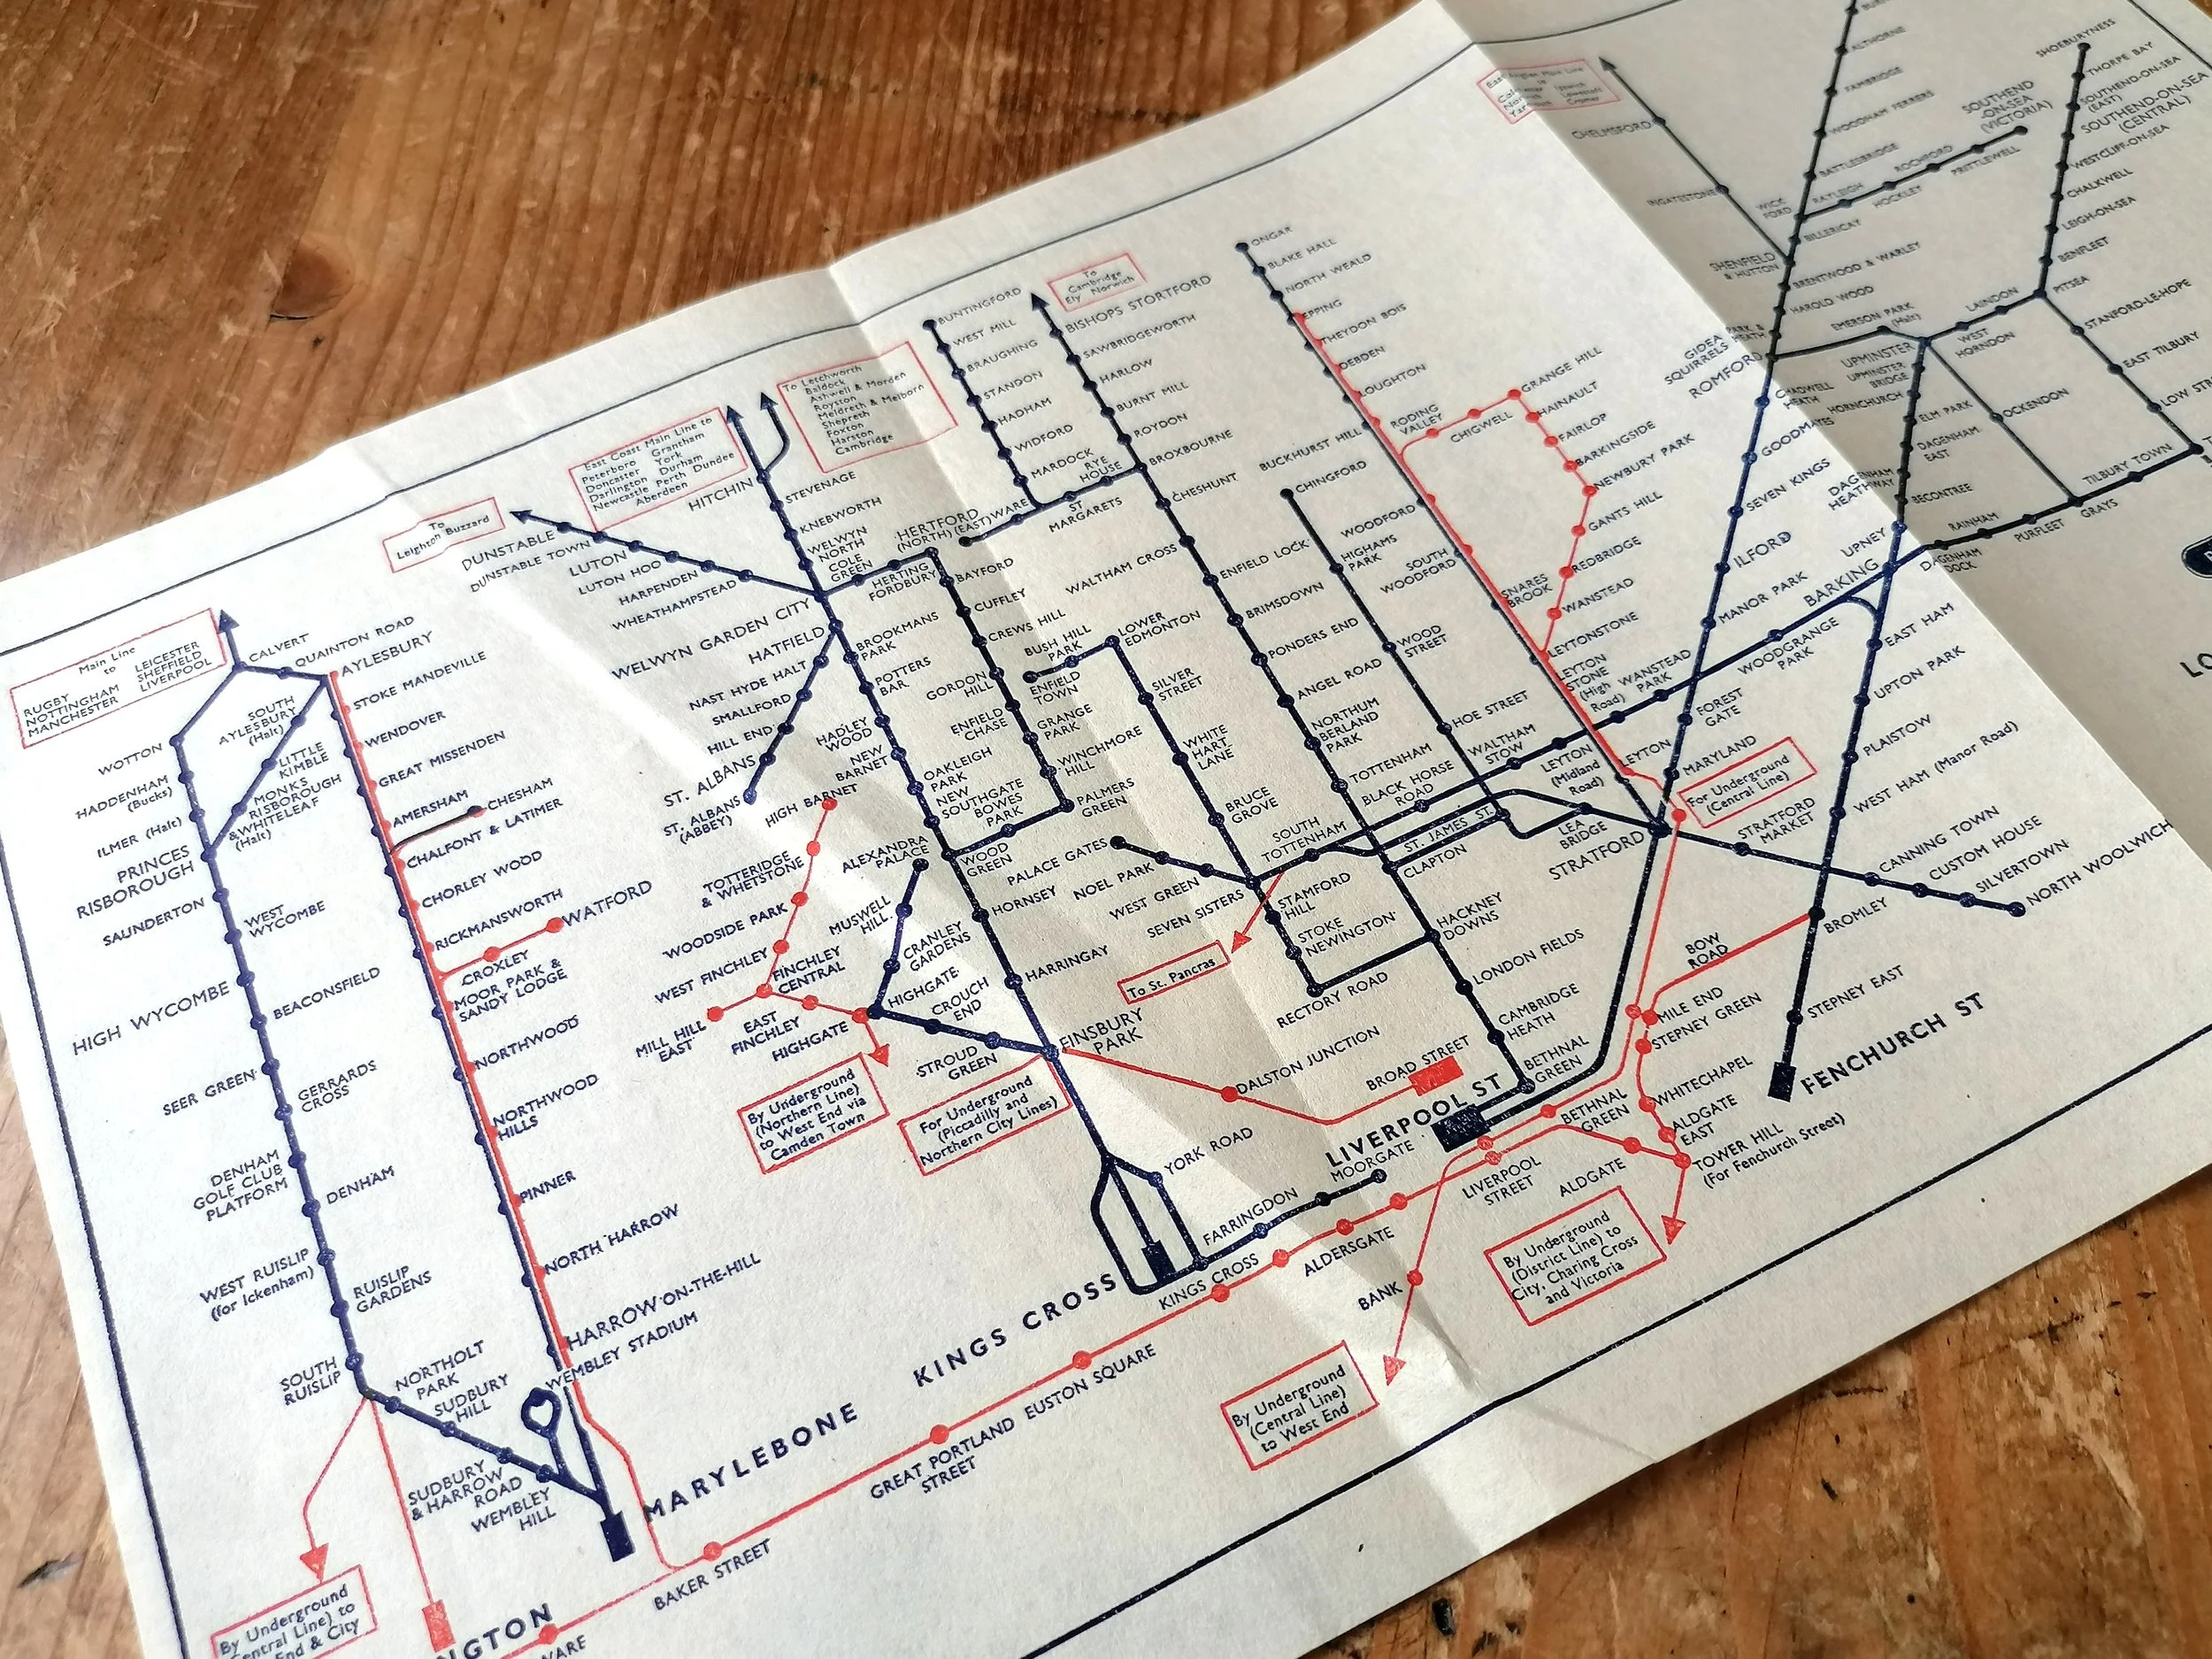 Main Line
to
RUGBY LEICESTER
NOTTINGHAM SHEFFIELD
MANCHESTER LIVERPOOL
CALVERT
QUAINTON ROAD
AYLESBURY
STOKE MANDEVILLE
WENDOVER
GREAT MISSENDEN
AMERSHAM
CHESHAM
CHALFONT & LATIMER
CHORLEY WOOD
RICKMANSWORTH
WATFORD
CROXLEY
MOOR PARK &
SANDY LODGE
NORTHWOOD
NORTHWOOD
HILLS
PINNER
NORTH HARROW
HARROW-ON-THE-HILL
WEMBLEY STADIUM
MARYLEBONE
WOTTON
HADDENHAM
(Bucks)
ILMER (Halt)
PRINCES
RISBOROUGH
SOUTH
AYLESBURY
(Halt)
LITTLE
KIMBLE
MONKS
RISBOROUGH
& WHITELEAF
(Halt)
SAUNDERTON
WEST
WYCOMBE
HIGH WYCOMBE
BEACONSFIELD
SEER GREEN
GERRARDS
CROSS
DENHAM
GOLF CLUB
PLATFORM
DENHAM
WEST RUISLIP
(for Ickenham)
RUISLIP
GARDENS
SOUTH
RUISLIP
NORTHOLT
PARK
SUDBURY
HILL
SUDBURY
& HARROW
ROAD
WEMBLEY
HILL
By Underground
Central Line) to
End & City
NGTON
WARE
BAKER STREET
GREAT PORTLAND
STREET
EUSTON SQUARE
KINGS CROSS
KINGS CROSS
FARRINGDON
ALDERSGATE
MOORGATE
LIVERPOOL ST
LIVERPOOL
STREET
BANK
By Underground
(Central Line)
to West End
To
Leighton Buzzard
DUNSTABLE
DUNSTABLE TOWN
LUTON
LUTON HOO
HARPENDEN
WHEATHAMPSTEAD
WELWYN GARDEN CITY
East Coast Main Line to
Peterboro Grantham
Doncaster York
Darlington Durham
Newcastle Perth Dundee
Aberdeen
To Letchworth
Baldock
Ashwell & Morden
Royston
Meldreth & Melborn
Shepreth
Foxton
Harston
Cambridge
HITCHIN
STEVENAGE
KNEBWORTH
WELWYN
NORTH
COLE
GREEN
HERTING
FORDBURY
HERTFORD
(NORTH)
(EAST)
BAYFORD
CUFFLEY
CREWS HILL
GORDON
HILL
ENFIELD
CHASE
GRANGE
PARK
WINCHMORE
HILL
PALMERS
GREEN
BOWES
PARK
HATFIELD
NAST HYDE HALT
SMALLFORD
HILL END
ST. ALBANS
ST. ALBANS
(ABBEY)
BROOKMANS
PARK
POTTERS
BAR.
HADLEY
WOOD
NEW
BARNET
OAKLEIGH
PARK
NEW
SOUTHGATE
WOOD
GREEN
HORNSEY
HARRINGAY
FINSBURY
PARK
HIGH BARNET
TOTTERIDGE
& WHETSTONE
WOODSIDE PARK
WEST FINCHLEY
FINCHLEY
CENTRAL
MILL HILL
EAST
EAST
FINCHLEY
HIGHGATE
By Underground
(Northern Line)
to West End via
Camden Town
ALEXANDRA
PALACE
MUSWELL
HILL
CRANLEY
GARDENS
HIGHGATE
CROUCH
END
STROUD
GREEN
For Underground
(Piccadilly and
Northern City Lines)
YORK ROAD
DALSTON JUNCTION
BROAD STREET
BUNTINGFORD
WEST MILL
BRAUGHING
STANDON
HADHAM
WIDFORD
MARDOCK
WARE
ST
MARGARETS
RYE
HOUSE
To
Cambridge
Ely Norwich
BISHOPS STORTFORD
SAWBRIDGEWORTH
HARLOW
BURNT MILL
ROYDON
BROXBOURNE
CHESHUNT
WALTHAM CROSS
ENFIELD LOCK
BRIMSDOWN
PONDERS END
ANGEL ROAD
NORTHUM
BERLAND
PARK
TOTTENHAM
BUSH HILL
PARK
ENFIELD
TOWN
LOWER
EDMONTON
SILVER
STREET
WHITE
HART
LANE
BRUCE
GROVE
PALACE GATES
NOEL PARK
WEST GREEN
SEVEN SISTERS
SOUTH
TOTTENHAM
STAMFORD
HILL
STOKE
NEWINGTON
RECTORY ROAD
To St. Pancras
CLAPTON
HACKNEY
DOWNS
LONDON FIELDS
CAMBRIDGE
HEATH
BETHNAL
GREEN
CHINGFORD
HIGHAMS
PARK
WOOD
STREET
HOE STREET
ST. JAMES ST.
BLACK HORSE
ROAD
WALTHAM
STOW
LEYTON
(Midland
Road)
LEA
BRIDGE
STRATFORD
ONGAR
BLAKE HALL
NORTH WEALD
EPPING
THEYDON BOIS
DEBDEN
LOUGHTON
BUCKHURST HILL
RODING
VALLEY
CHIGWELL
GRANGE HILL
HAINAULT
FAIRLOP
BARKINGSIDE
NEWBURY PARK
GANTS HILL
REDBRIDGE
WANSTEAD
WOODFORD
SOUTH
WOODFORD
SNARES
BROOK
LEYTONSTONE
LEYTON
STONE
(High
Road)
WANSTEAD
PARK
LEYTON
MARYLAND
For Underground
(Central Line)
STRATFORD
MARKET
CANNING TOWN
CUSTOM HOUSE
SILVERTOWN
NORTH WOOLWICH
FOREST
GATE
MANOR PARK
WOODGRANGE
PARK
ILFORD
SEVEN KINGS
GOODMAYES
CHADWELL
HEATH
ROMFORD
HAROLD WOOD
BRENTWOOD & WARLEY
SHENFIELD
& HUTTON
INGATESTONE
CHELMSFORD
BILLERICAY
WICK
FORD
RAYLEIGH
HOCKLEY
ROCHFORD
PRITTLEWELL
SOUTHEND
-ON-SEA
(VICTORIA)
BATTLESBRIDGE
WOODHAM FERRERS
FAMBRIDGE
ALTHORNE
SHOEBURYNESS
THORPE BAY
SOUTHEND-ON-SEA
(EAST)
SOUTHEND-ON-SEA
(CENTRAL)
WESTCLIFF-ON-SEA
CHALKWELL
LEIGH-ON-SEA
BENFLEET
PITSEA
LAINDON
WEST
HORNDON
EMERSON PARK
(Halt)
UPMINSTER
UPMINSTER
BRIDGE
HORNCHURCH
ELM PARK
DAGENHAM
EAST
DAGENHAM
HEATHWAY
BECONTREE
UPNEY
BARKING
STANFORD-LE-HOPE
EAST TILBURY
TILBURY TOWN
OCKENDON
GRAYS
PURFLEET
RAINHAM
DAGENHAM
DOCK
EAST HAM
UPTON PARK
PLAISTOW
WEST HAM (Manor Road)
BROMLEY
BOW
ROAD
STEPNEY EAST
FENCHURCH ST
MILE END
STEPNEY GREEN
WHITECHAPEL
BETHNAL
GREEN
ALDGATE
EAST
ALDGATE
TOWER HILL
(For Fenchurch Street)
By Underground
(District Line) to
City, Charing Cross
and Victoria